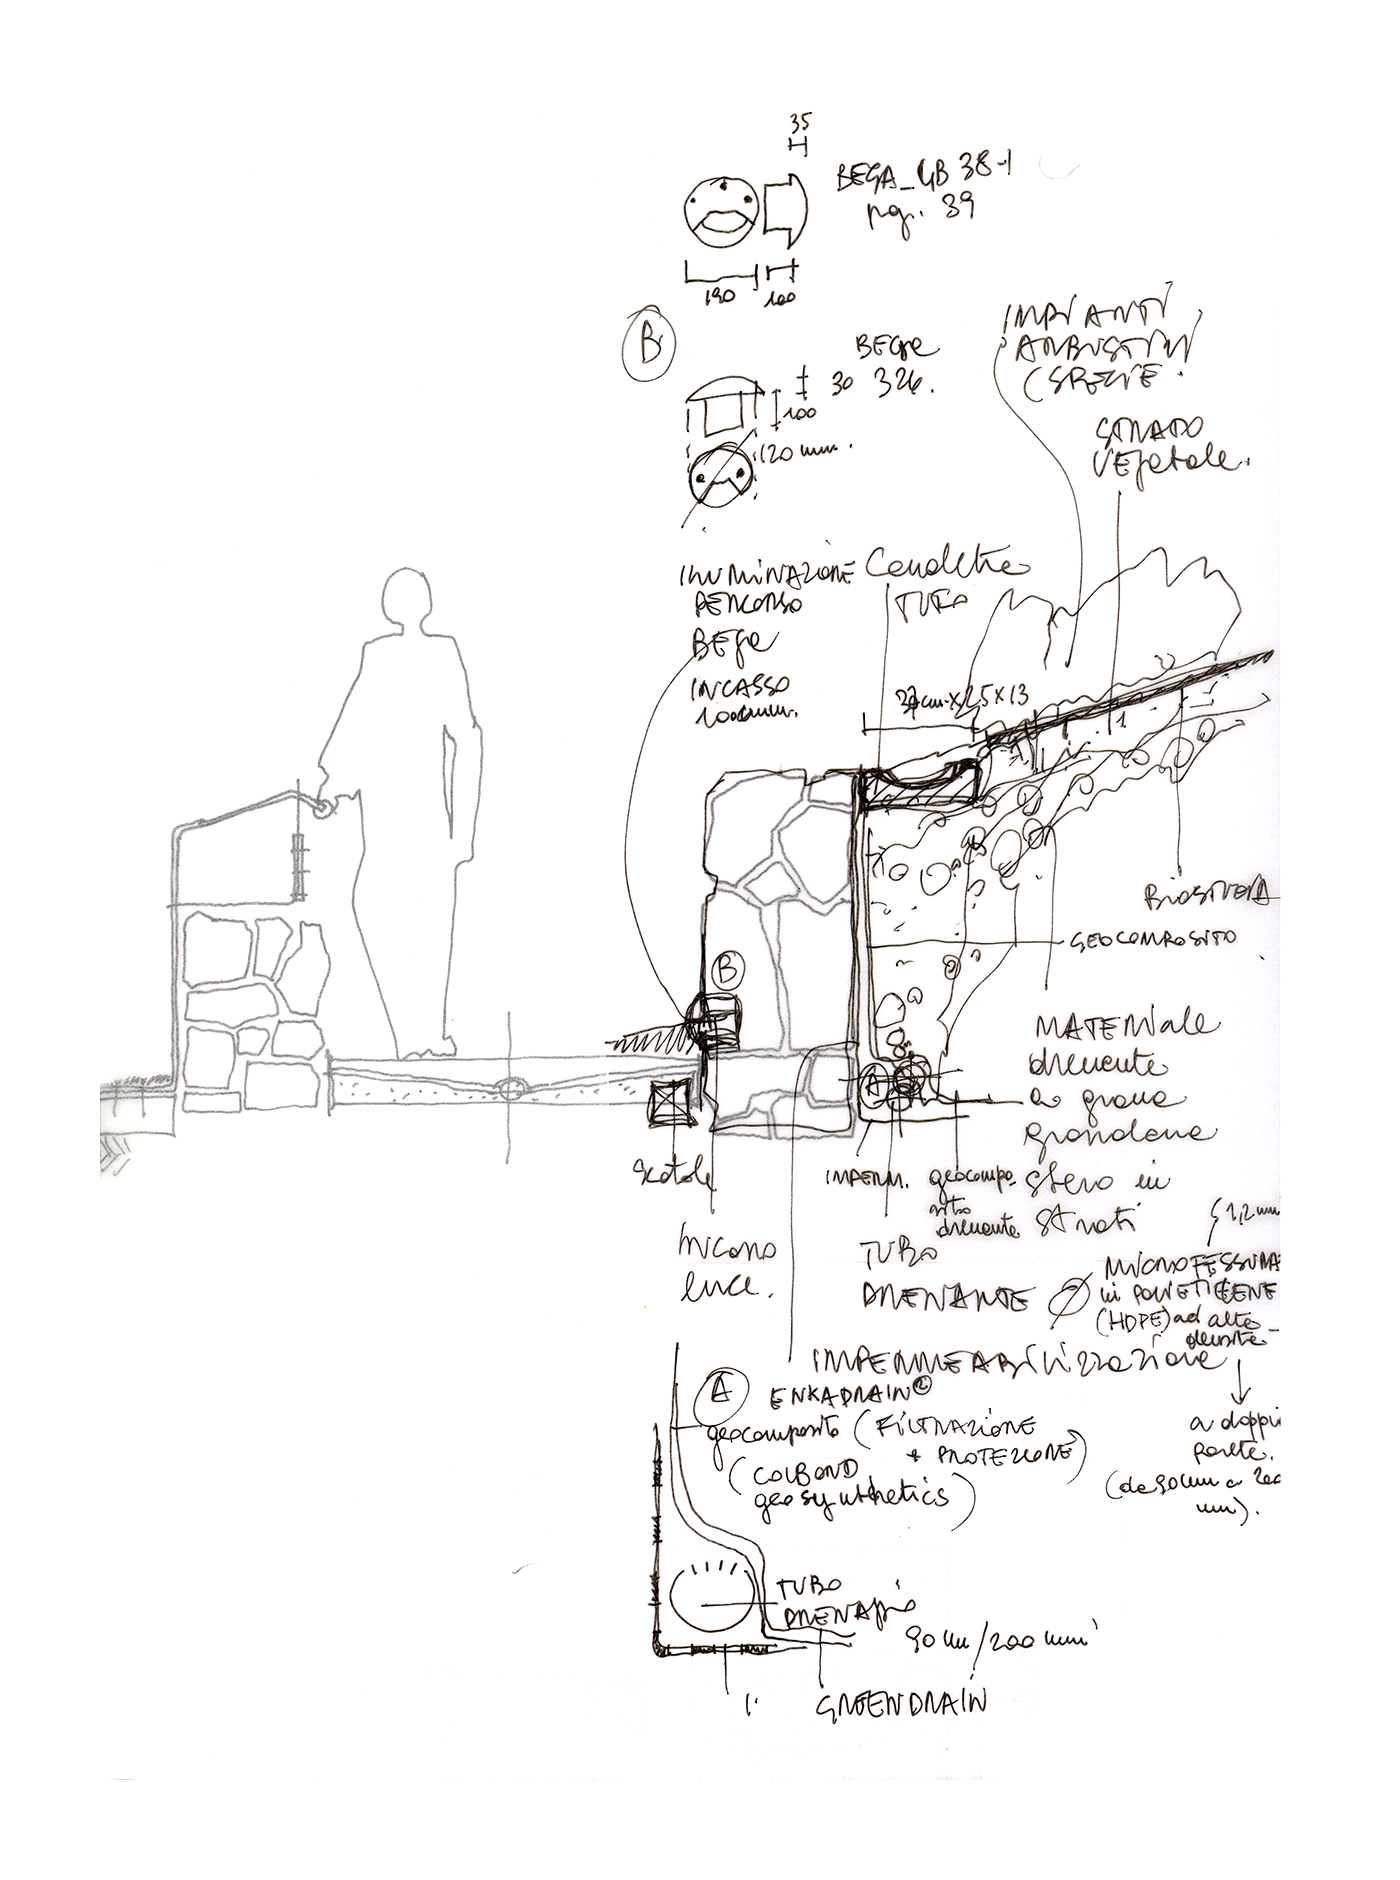 35
BEGA_GB 38-1
pg. 39
190
100
B
BEGA
30 326.
100
120 mm.
IMPIANTI
ARBUSTIVI
(SPECIE.
STRATO
VEGETALE.
ILLUMINAZIONE
PERCORSO
BEGA
INCASSO
100mm.
Canaletta
TUFO
cm x 25 x 13
B
BIOSTUOIA
GEOCOMPOSITO
A
MATERIALE
drenante
a grana
grossolana
steso in
strati
scatola
IMPERM.
geocompo
sito
drenante
incasso
luce.
TUBO
DRENANTE
1,2 mm
MICROFESSURA
in POLIETILENE
(HDPE) ad alta
densità
IMPERMEABILIZZAZIONE
a doppi
parete.
(da 90mm a 200
mm).
A
ENKADRAIN
geocomposito (FILTRAZIONE
+ PROTEZIONE)
(COLBOND
geosynthetics)
TUBO
DRENAGGIO
90 mm/200 mm
GREENDRAIN